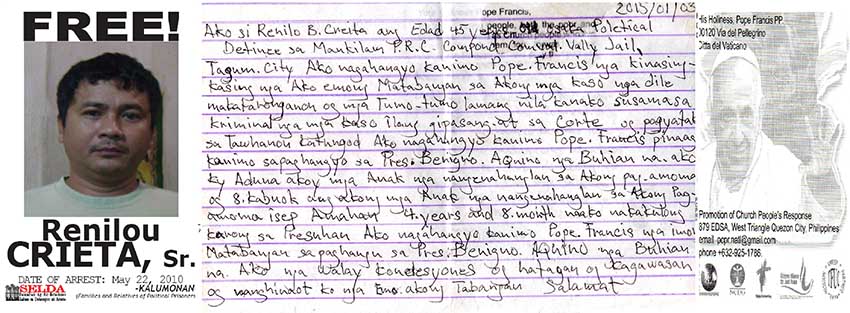 FREE!
Renilou
CRIETA, Sr.
DATE OF ARREST: May 22, 2010
-KALUMONAN
(Families and Relatives of Political Prisoners
SELDA
Pope Francis,
2015/01/03
Ako si Renilo B. Crieta ang Edad 45 years old usa ka Poletical
Detinee sa Mankilam P.R.C. Compound Comval. Vally Jail,
Tagum. City Ako nagahangyo kanimo Pope. Francis nga kinasing-
kasing nga Ako emong Matabangan sa Akong mga kaso nga dile
makataronganon og mga Tumo-tumo lamang nila kanako susama sa
kriminal nga mga kaso ilang gipasang.at sa Corte og pagyatak
sa Tawhanon katungod Ako nagahangyo kanimo Pope. Francis pinaagi
kanimo sapaghangyo sa Pres. Benigno. Aquino nga Buhian na. ako
ky Aduna akoy mga Anak nga nangenahanglan sa Akong pag.amoma
og 8.kabuok ang akong mga Anak nga nangenahanglan sa Akong Pag-
amoma isep Amahan 4.years and 8.month naako nakakulong
sa Presuhan Ako nagahangyo kanimo Pope. Francis nga imo
Matabangan sapaghangyo sa Pres. Benigno. Aquino nga Buhian
na. Ako nga walay kondesyones og hatagan og kagawasan
og nanghinaot ko nga akong Tabangan Salamat
His Holiness, Pope Francis PP.
00120 Via del Pellegrino
Citta del Vaticano
Promotion of Church People's Response
879 EDSA, West Triangle Quezon City, Philippines
email: pcpr.natl@gmail.com
phone +632-925-1786